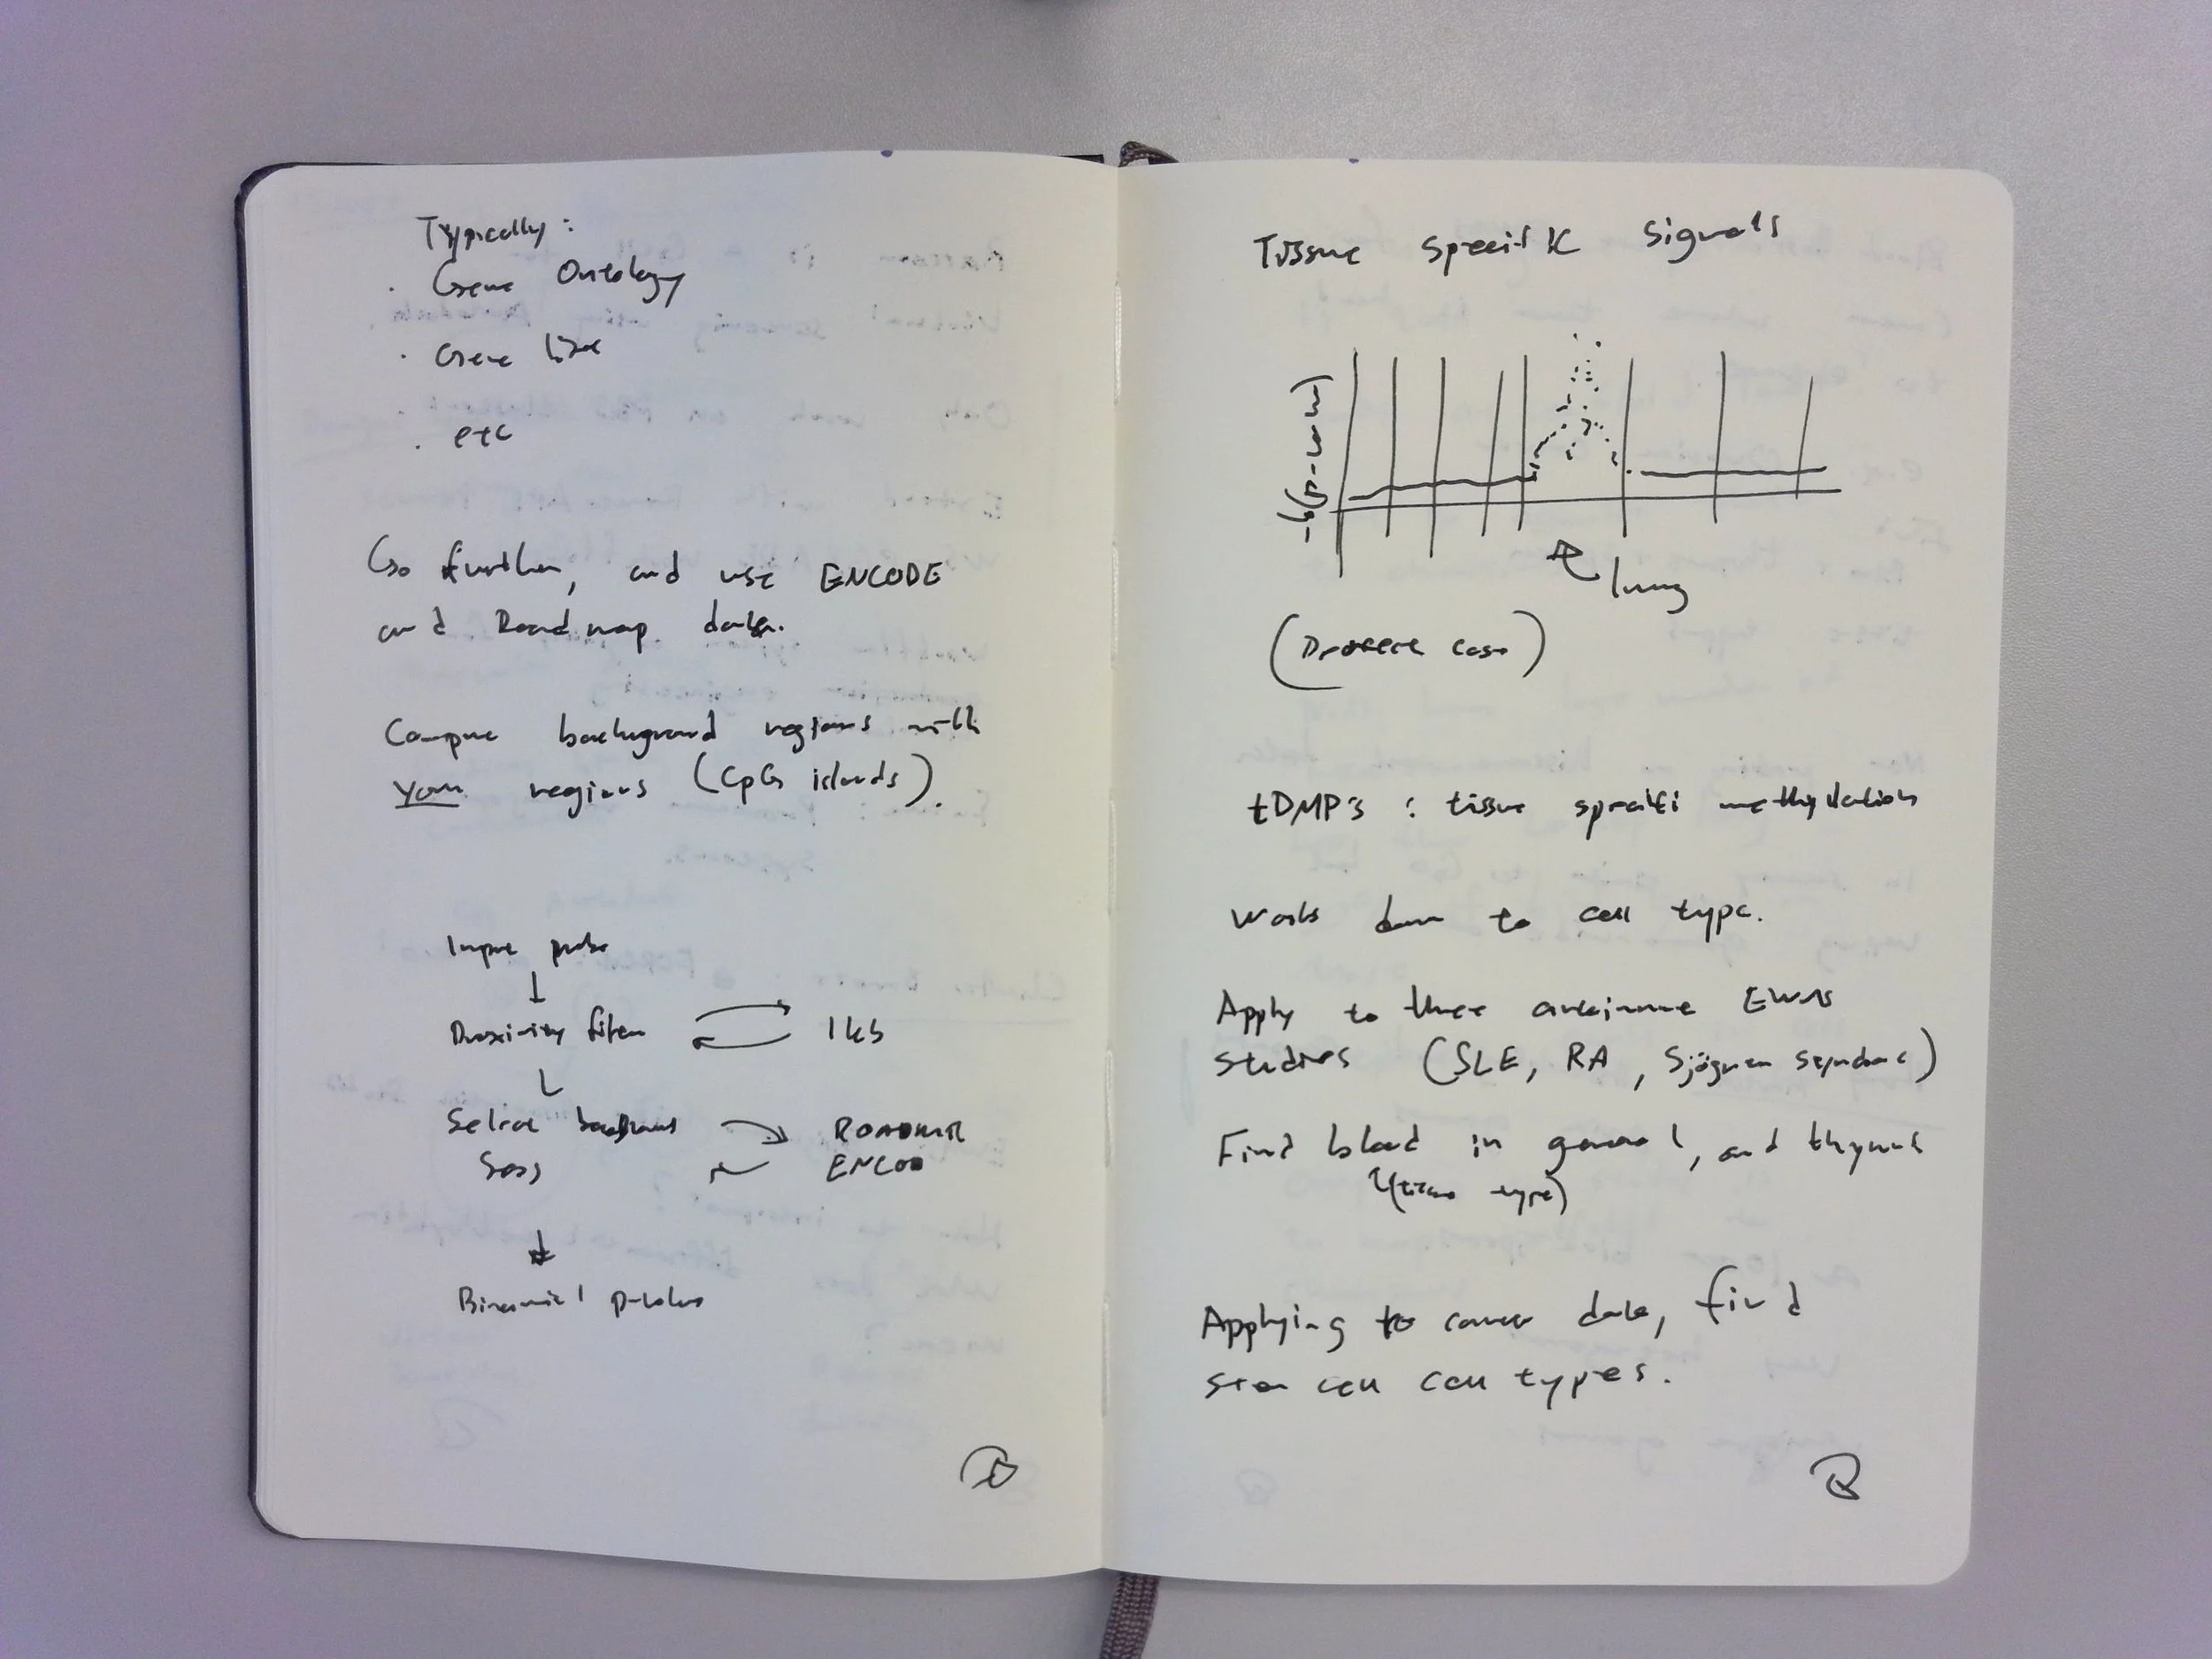 Typically:
· Gene Ontology
· Gene list
· etc
Go further, and use ENCODE
and Roadmap data.
Compare background regions with
your regions (CpG islands).
Input probe
↓
Proximity filter ⇄ 1kb
↓
Select background → ROADMAP
← ENCOD
↓
Binomial p-value
Tissue Specific Signals
lung
case)
tDMP's : tissue specifi methylation
Works down to cell type.
Apply to three autoimmune EWAS
studies (SLE, RA, Sjögren syndrome)
Find blood in general, and thymus
(tissue type)
Applying to cancer data, find
stem cell cell types.